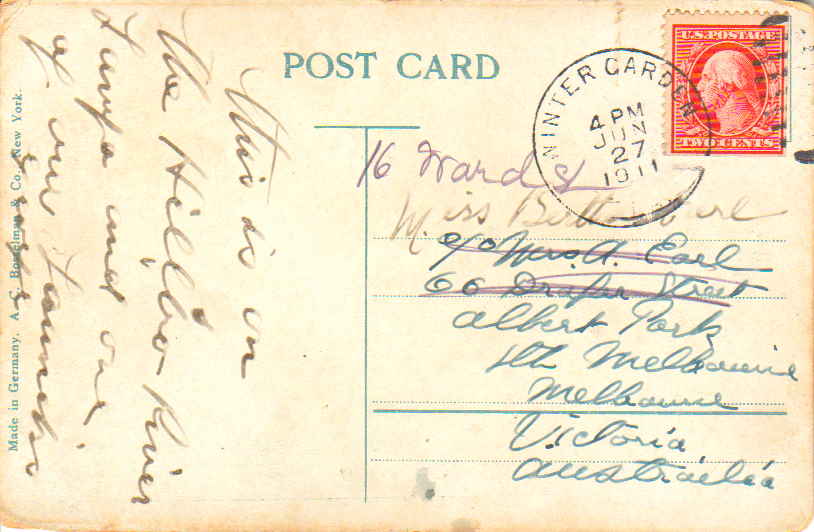 POST CARD
U.S. POSTAGE
TWO CENTS
WINTER GARDEN
4 PM
JUN
27
1911
This is on
the Hillsbo River
Tampa and one
of our
Made in Germany. A. C. Bosselman & Co., New York.
16 Ward St
Miss
c/o Mrs. A. Earl
66 Draper Street
Albert Park
Sth Melbourne
Melbourne
Victoria
Austrailia